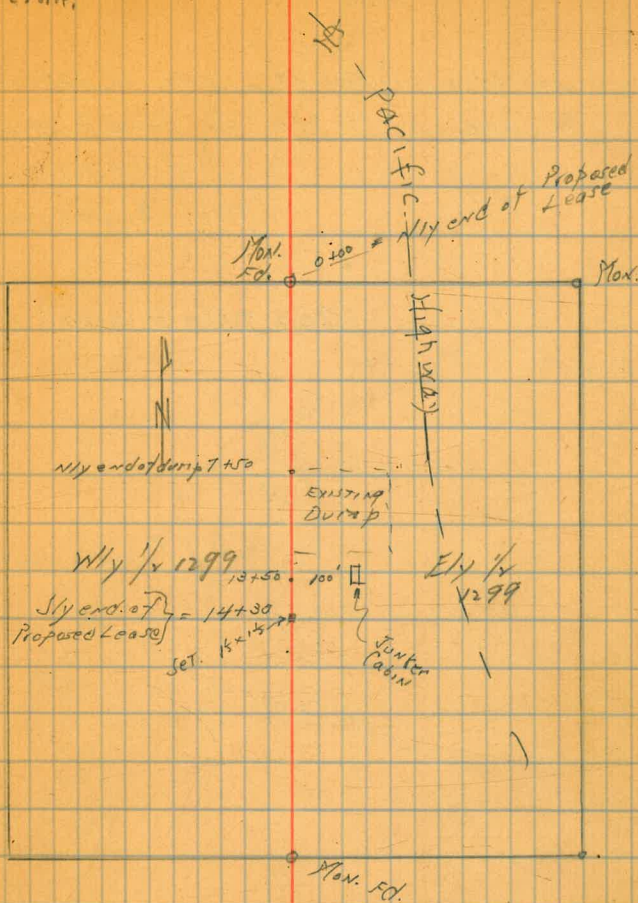 Pacific Highway
0+00 = Nly end of Proposed
Lease
Mon.
Fd.
Mon.
N
Nly end of dump 7+50
Existing
Dump
Wly 1/2 1299
13+50
100'
Ely 1/2
1299
Sly end of
Proposed Lease } = 14+30
Set. 1½x1½
Junker
Cabin
Mon. Fd.